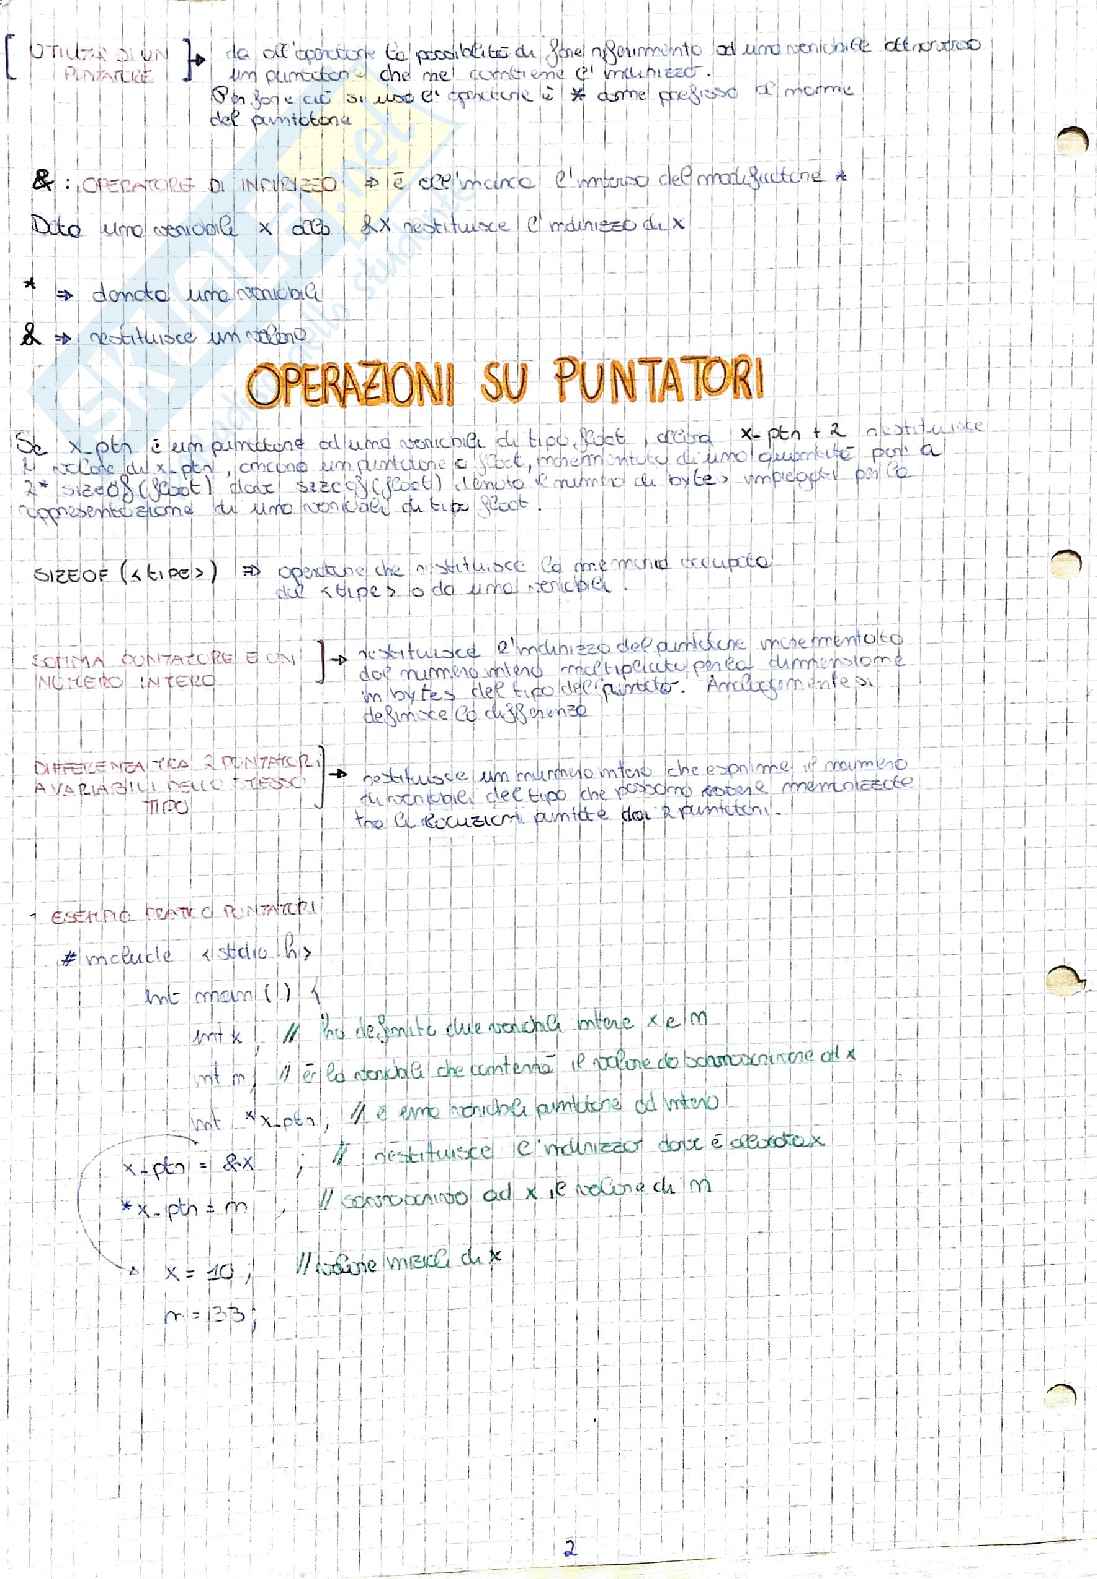 [UTILIZZO DI UN PUNTATORE] → da all'operatore la possibilità di fare riferimento ad una variabile attraverso
un puntatore che ne contiene l'indirizzo.
Per fare ciò si usa l'operatore è * come prefisso al nome
del puntatore
& : OPERATORE DI INDIRIZZO ⇒ è all'incirca l'inverso del modificatore *
Data una variabile x allo &x restituisce l'indirizzo di x
* ⇒ denota una variabile
& ⇒ restituisce un valore
OPERAZIONI SU PUNTATORI
Se x_ptr è un puntatore ad una variabile di tipo float, allora x_ptr + 2 restituisce
il valore di x_ptr, ancora un puntatore a float, incrementato di una quantità pari a
2* sizeof (float) dove sizeof (float) denota il numero di bytes impiegati per la
rappresentazione di una variabile di tipo float.
SIZEOF (<tipe>) ⇒ operatore che restituisce la memoria occupata
dal <tipe> o da una variabile.
SOMMA PUNTATORE E UN NUMERO INTERO ] → restituisce l'indirizzo del puntatore incrementato
dal numero intero moltiplicato per la dimensione
in bytes del tipo del puntato. Analogamente si
definisce la differenza
DIFFERENZA TRA 2 PUNTATORI A VARIABILI DELLO STESSO TIPO ] → restituisce un numero intero che esprime il numero
di variabili del tipo che possono essere memorizzate
tra le locazioni puntate dai 2 puntatori.
ESEMPIO PUNTATORI
# include <stdio.h>
int main () {
int x; // ho definito due variabili intere x e n
int n; // è la variabile che conterrà il valore da sovrascrivere ad x
int *x_ptr; // è una variabile puntatore ad intero
x_ptr = &x ; // restituisce l'indirizzo dove è allocata x
*x_ptr = n ; // sovrascrivo ad x il valore di n
x = 10; // valore iniziale di x
n = 33;
2